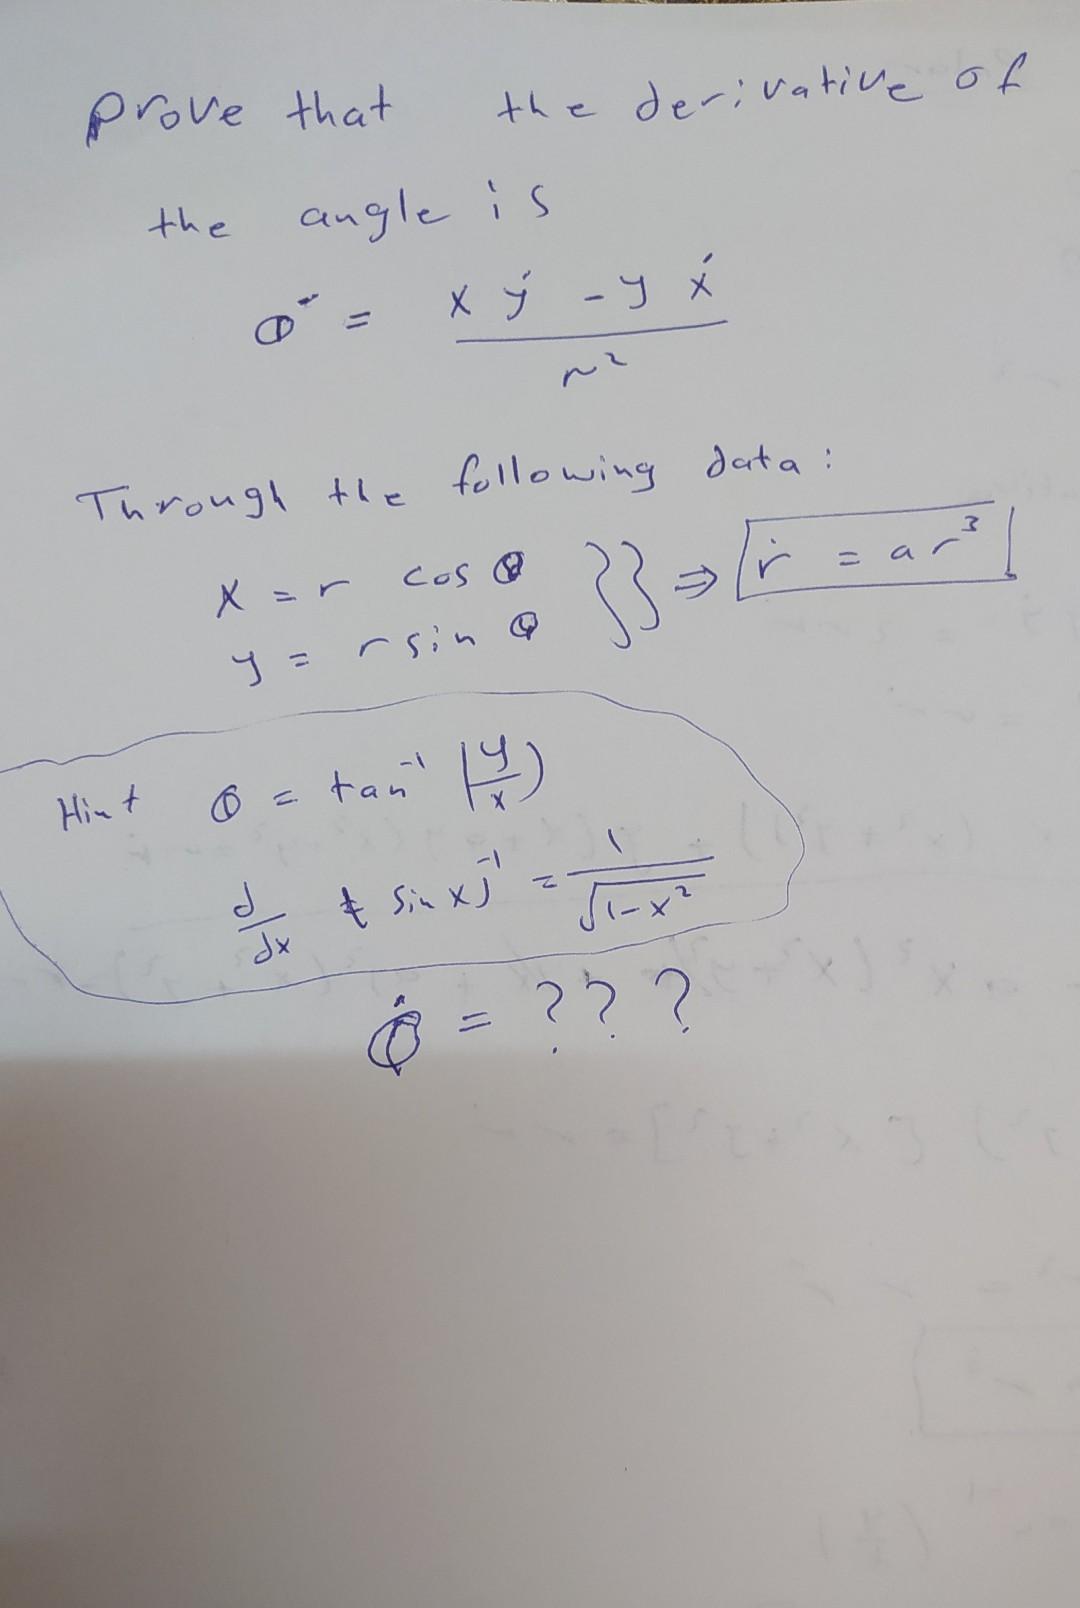 prove that the derivative of
the angle is
θ̇ = x ẏ - y ẋ
r²
Through the following data:
x = r cos θ
y = r sin θ }} ⇒ ṙ = a r³
Hint θ = tan⁻¹ (y/x)
d/dx sin x)⁻¹ = 1/√1-x²
θ̇ = ???